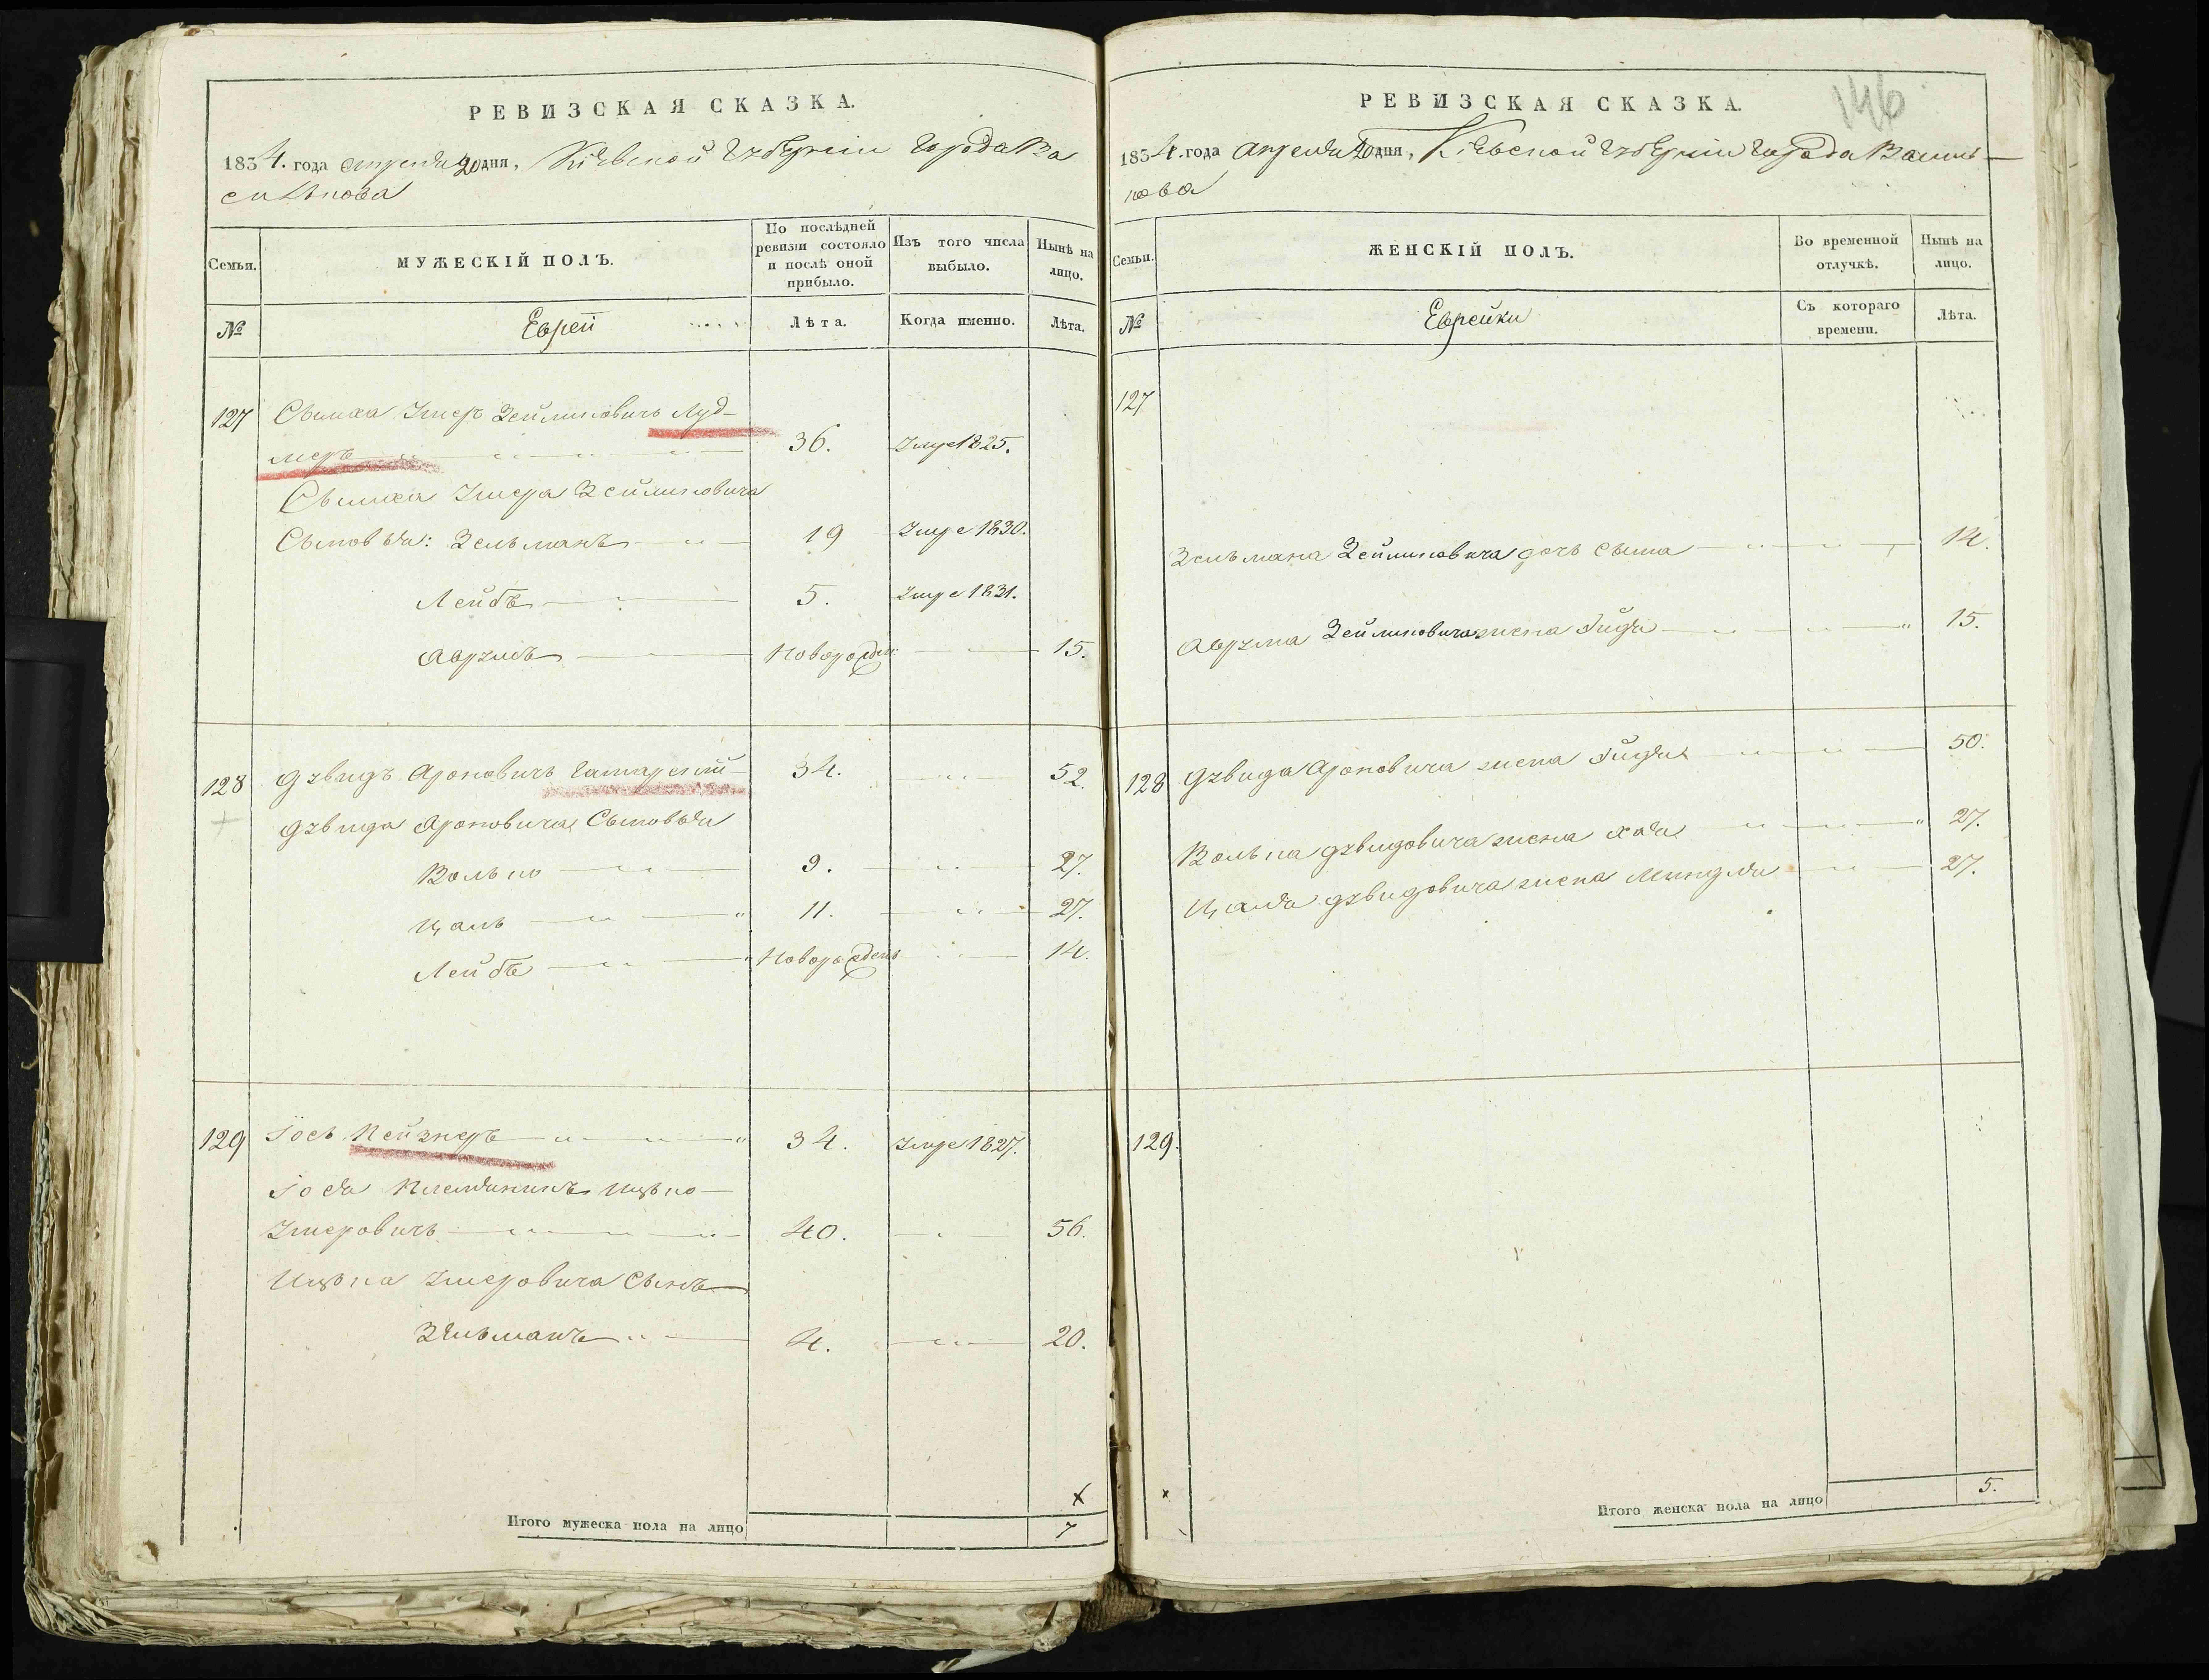 РЕВИЗСКАЯ СКАЗКА.
1834. года апреля 20 дня, Кіевской Губерніи города Ва
силькова
Семьи.
МУЖЕСКІЙ ПОЛЪ.
По послѣдней ревизіи состояло и послѣ оной прибыло.
Изъ того числа выбыло.
Нынѣ на лицо.
№
Евреи
Лѣта.
Когда именно.
Лѣта.
127 Умер Зейликовичъ Луд-
меръ 36. Умре 1825.
Умера Зейликовича
Сыновья: Зельманъ 19 Умре 1830.
Лейбъ 5. Умре 1831.
Аврумъ Новорожден. 15.
128 Дувидъ Ароновичъ Татарскій 34. 52.
Дувида Ароновича Сыновья
Волько 9. 27.
Цаль 11. 27.
Лейбъ Новорожденъ 14.
129 Іось Пейзнеръ 34. Умре 1827.
Іося Племяникъ Ицько
Умеровичъ 40. 56.
Ицька Умеровича Сынъ
Зельманъ 4. 20.
Итого мужеска пола на лицо 7
РЕВИЗСКАЯ СКАЗКА.
146
1834. года апреля 20 дня, Кіевской Губерніи города Василь-
кова
Семьи.
ЖЕНСКІЙ ПОЛЪ.
Во временной отлучкѣ.
Нынѣ на лицо.
№
Еврейки
Съ котораго времени.
Лѣта.
127
Зельмана Зейликовича дочь Сыма 14.
Аврума Зейликовича жена 15.
128 Дувида Ароновича жена 50.
Волька Дувидовича жена Хая 27.
Цаля Дувидовича жена Миндля 27.
129.
Итого женска пола на лицо 5.